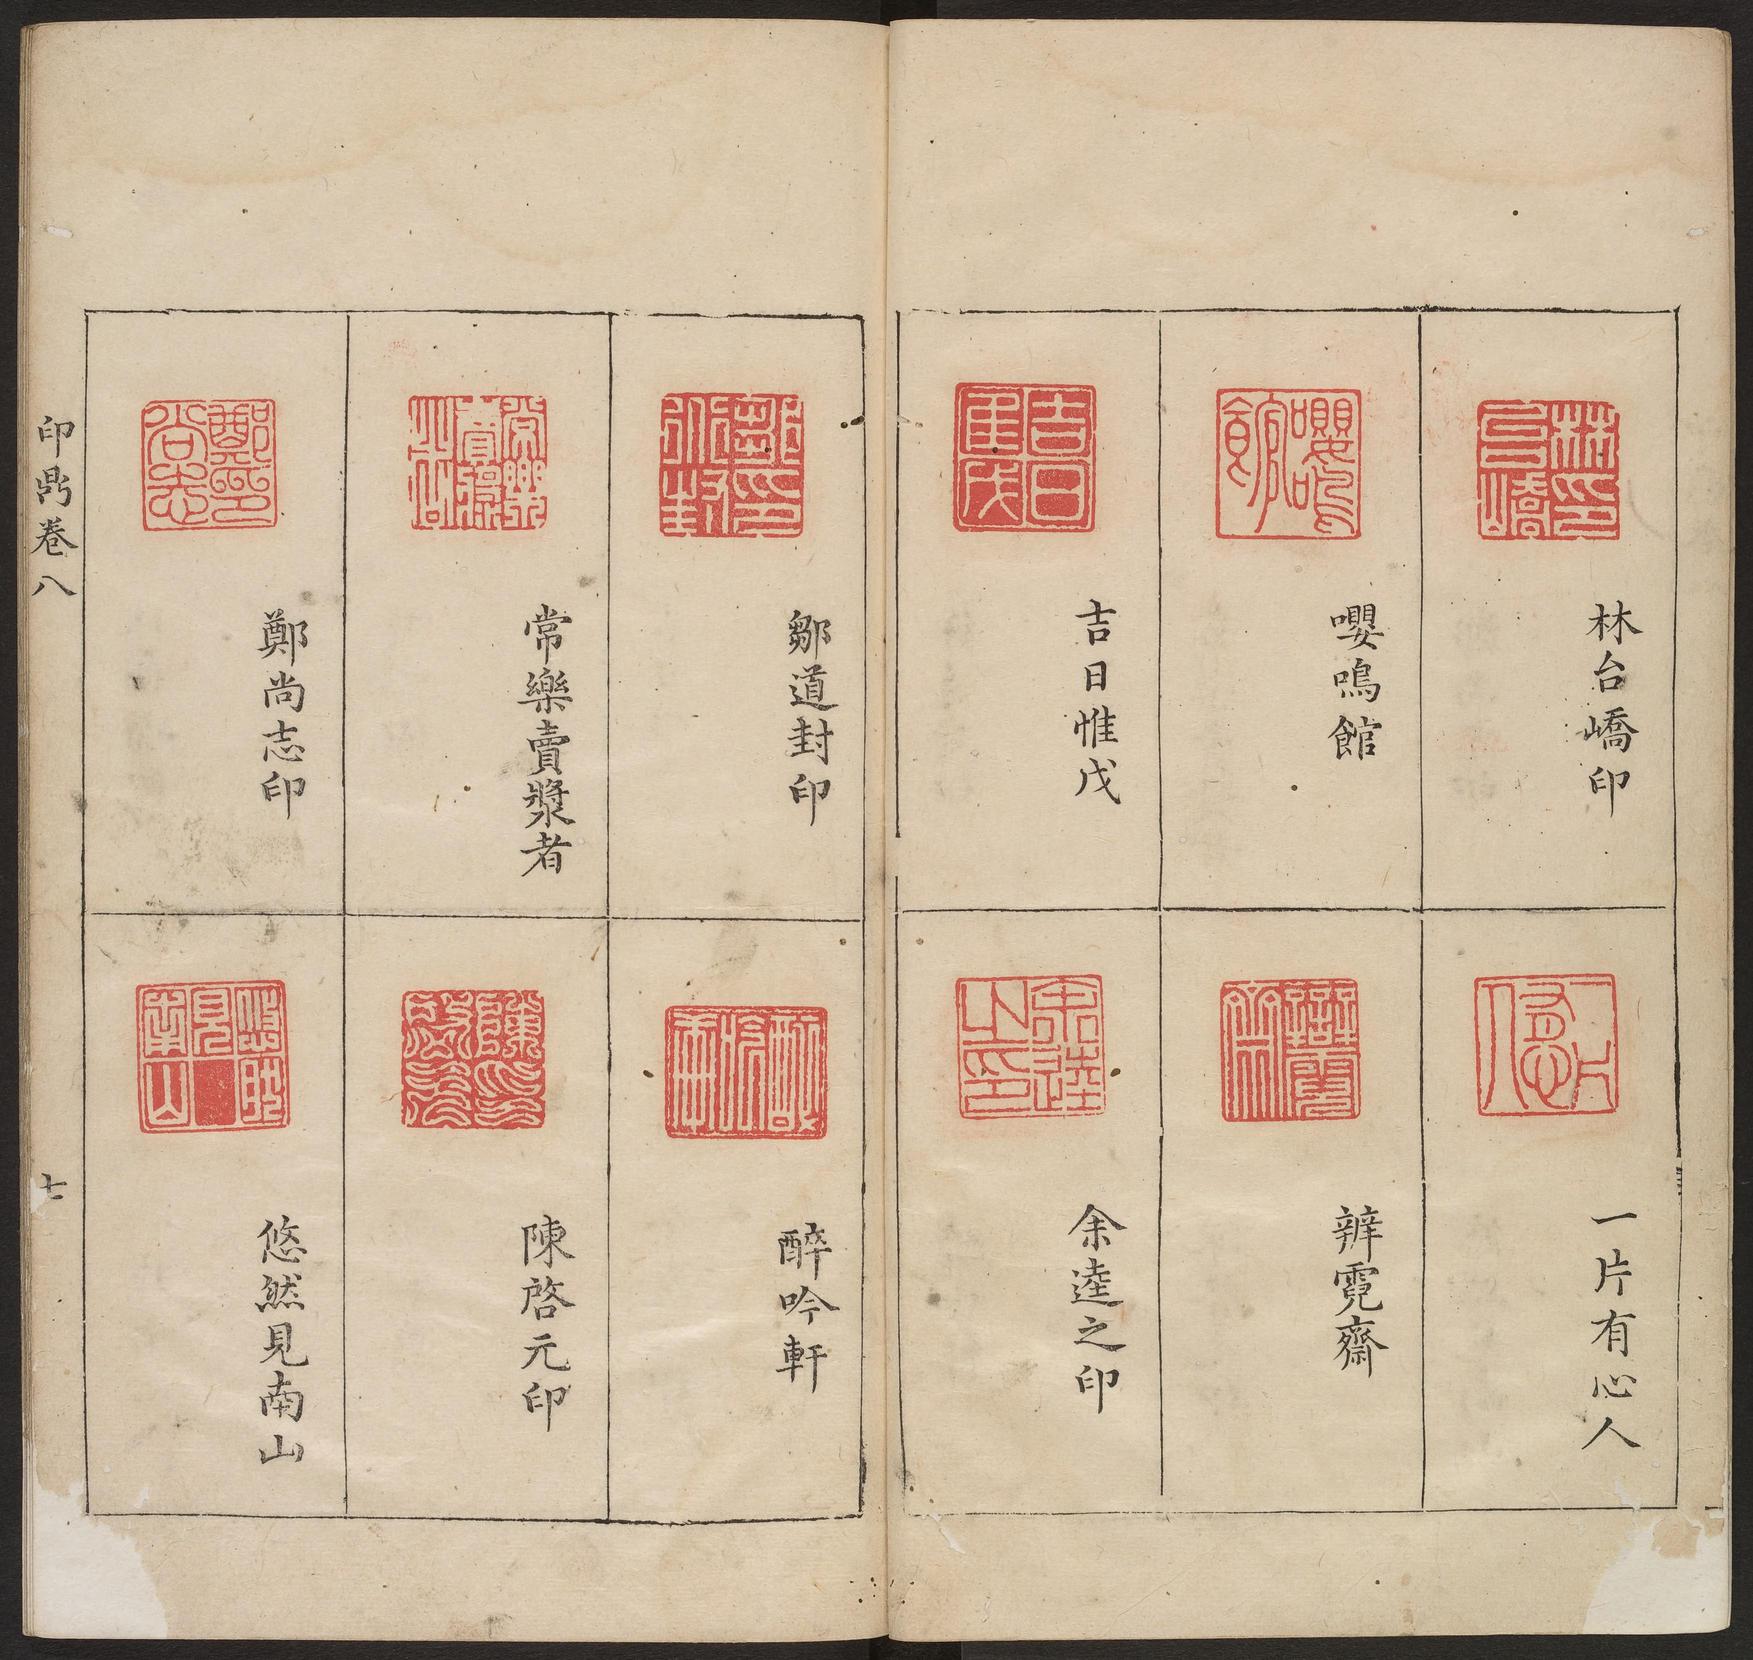 林台嶠印
嚶鳴館
吉日惟戊
一片有心人
辨霓齋
余逵之印
鄒道封印
常樂賣漿者
鄭尚志印
醉吟軒
陳啓元印
悠然見南山
印鼎卷八
七